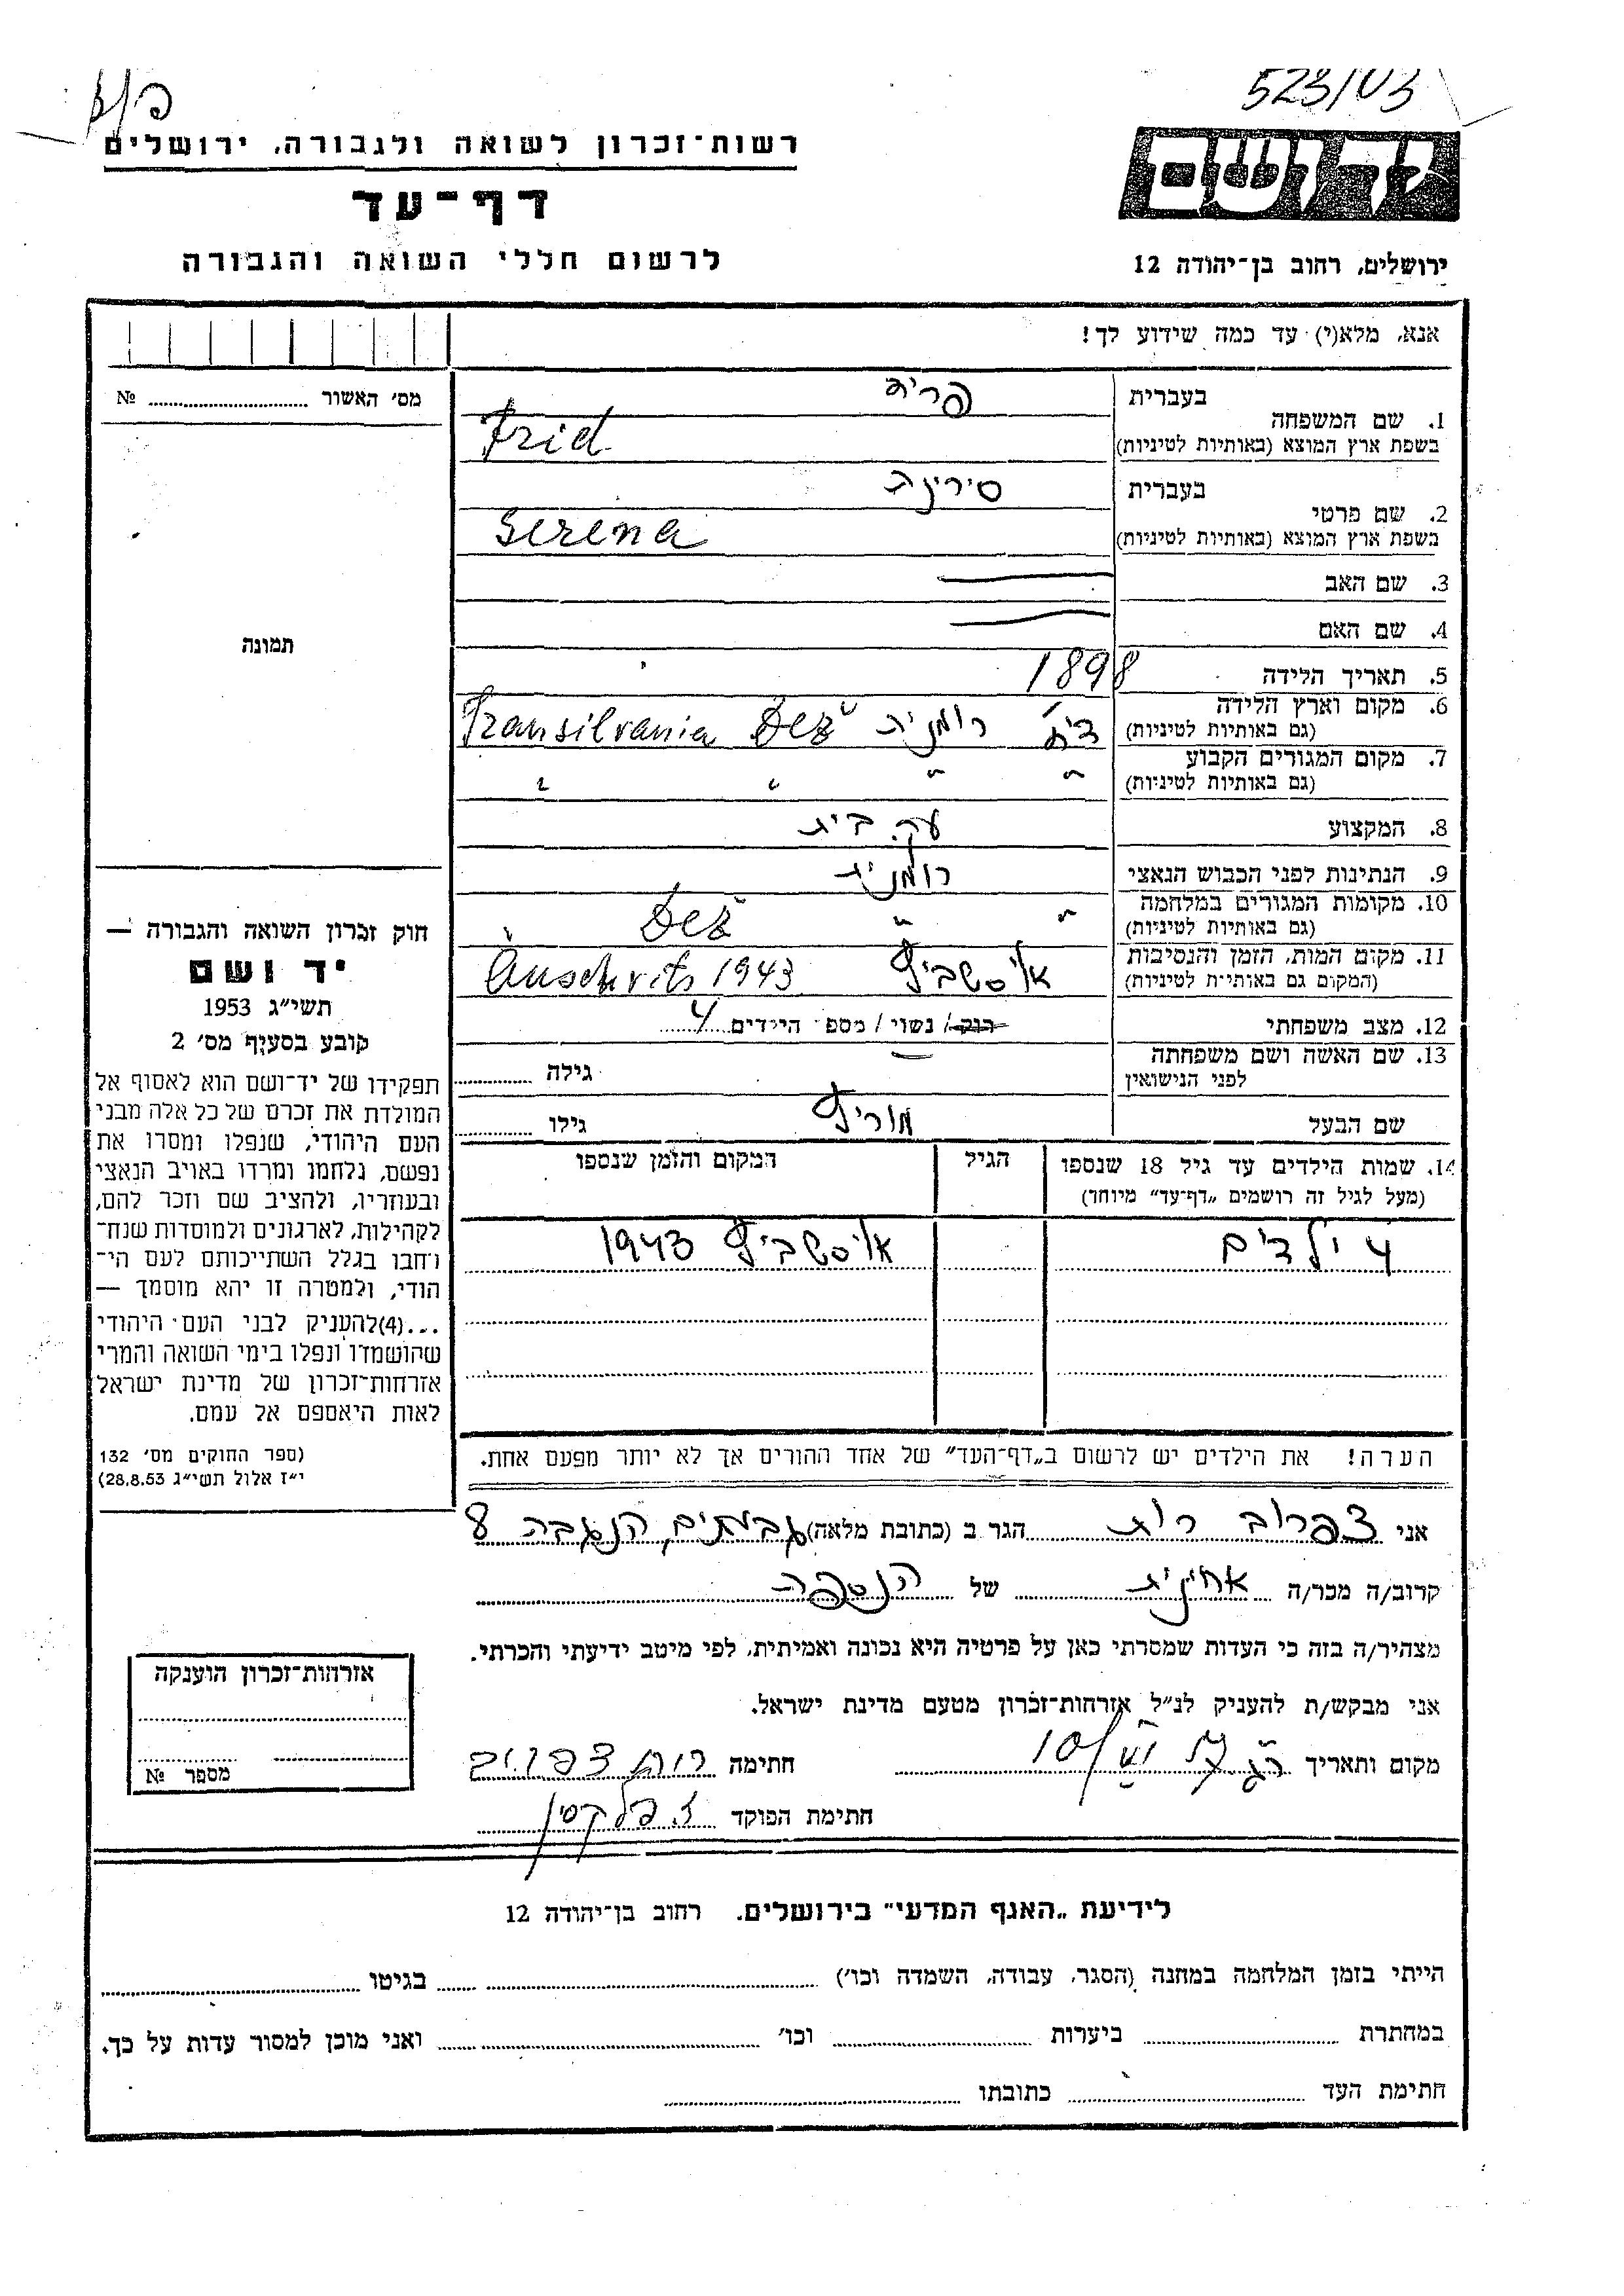 523/03
רשות־זכרון לשואה ולגבורה, ירושלים
יד ושם
דף־עד
לרשום חללי השואה והגבורה
ירושלים, רחוב בן־יהודה 12
אנא, מלא(י) עד כמה שידוע לך!
מס׳ האשור № ........
בעברית פריד
1. שם המשפחה
בשפת ארץ המוצא (באותיות לטיניות) Frid
בעברית סירינה
2. שם פרטי
בשפת ארץ המוצא (באותיות לטיניות) Serena
3. שם האב
4. שם האם
תמונה
5. תאריך הלידה 1898
6. מקום וארץ הלידה
(גם באותיות לטיניות) רומניה Dež Transilvania
7. מקום המגורים הקבוע
(גם באותיות לטיניות) " " " "
8. המקצוע עק. בית
9. הנתינות לפני הכבוש הנאצי רומנית
10. מקומות המגורים במלחמה
(גם באותיות לטיניות) " " Dež "
11. מקום המות, הזמן והנסיבות
(המקום גם באותיות לטיניות) אושביץ Auschvits 1943
12. מצב משפחתי רוק/ נשוי/ מספ׳ הילדים 4
13. שם האשה ושם משפחתה
לפני הנישואין גילה ........
שם הבעל מוריץ גילו ........
14. שמות הילדים עד גיל 18 שנספו הגיל המקום והזמן שנספו
(מעל לגיל זה רושמים „דף־עד״ מיוחד)
4 ילדים אושביץ 1943
הערה! את הילדים יש לרשום ב„דף־העד״ של אחד ההורים אך לא יותר מפעם אחת.
חוק זכרון השואה והגבורה —
יד ושם
תשי״ג 1953
קובע בסעיף מס׳ 2
תפקידו של יד־ושם הוא לאסוף אל
המולדת את זכרם של כל אלה מבני
העם היהודי, שנפלו ומסרו את
נפשם, נלחמו ומרדו באויב הנאצי
ובעוזריו, ולהציב שם וזכר להם,
לקהילות, לארגונים ולמוסדות שנח־
רחבו בגלל השתייכותם לעם הי־
הודי, ולמטרה זו יהא מוסמך —
...(4) להעניק לבני העם היהודי
שהושמדו ונפלו בימי השואה והמרי
אזרחות־זכרון של מדינת ישראל
לאות היאספם אל עמם.
(ספר החוקים מס׳ 132
י״ז אלול תשי״ג 28.8.53)
אני צפרוב רות הגר ב (כתובת מלאה) גבעתים, הנגבה 8
קרוב/ה מכר/ה אחינית של הנספה
מצהיר/ה בזה כי העדות שמסרתי כאן על פרטיה היא נכונה ואמיתית, לפי מיטב ידיעתי והכרתי.
אני מבקש/ת להעניק לנ״ל אזרחות־זכרון מטעם מדינת ישראל.
מקום ותאריך ר״ג חתימה רות צפרוב
חתימת הפוקד
אזרחות־זכרון הוענקה
מספר №
לידיעת „האגף המדעי״ בירושלים. רחוב בן־יהודה 12
הייתי בזמן המלחמה במחנה (הסגר, עבודה, השמדה וכו׳) ........ בגיטו ........
במחתרת ........ ביערות ........ וכו׳ ........ ואני מוכן למסור עדות על כך.
חתימת העד ........ כתובתו ........